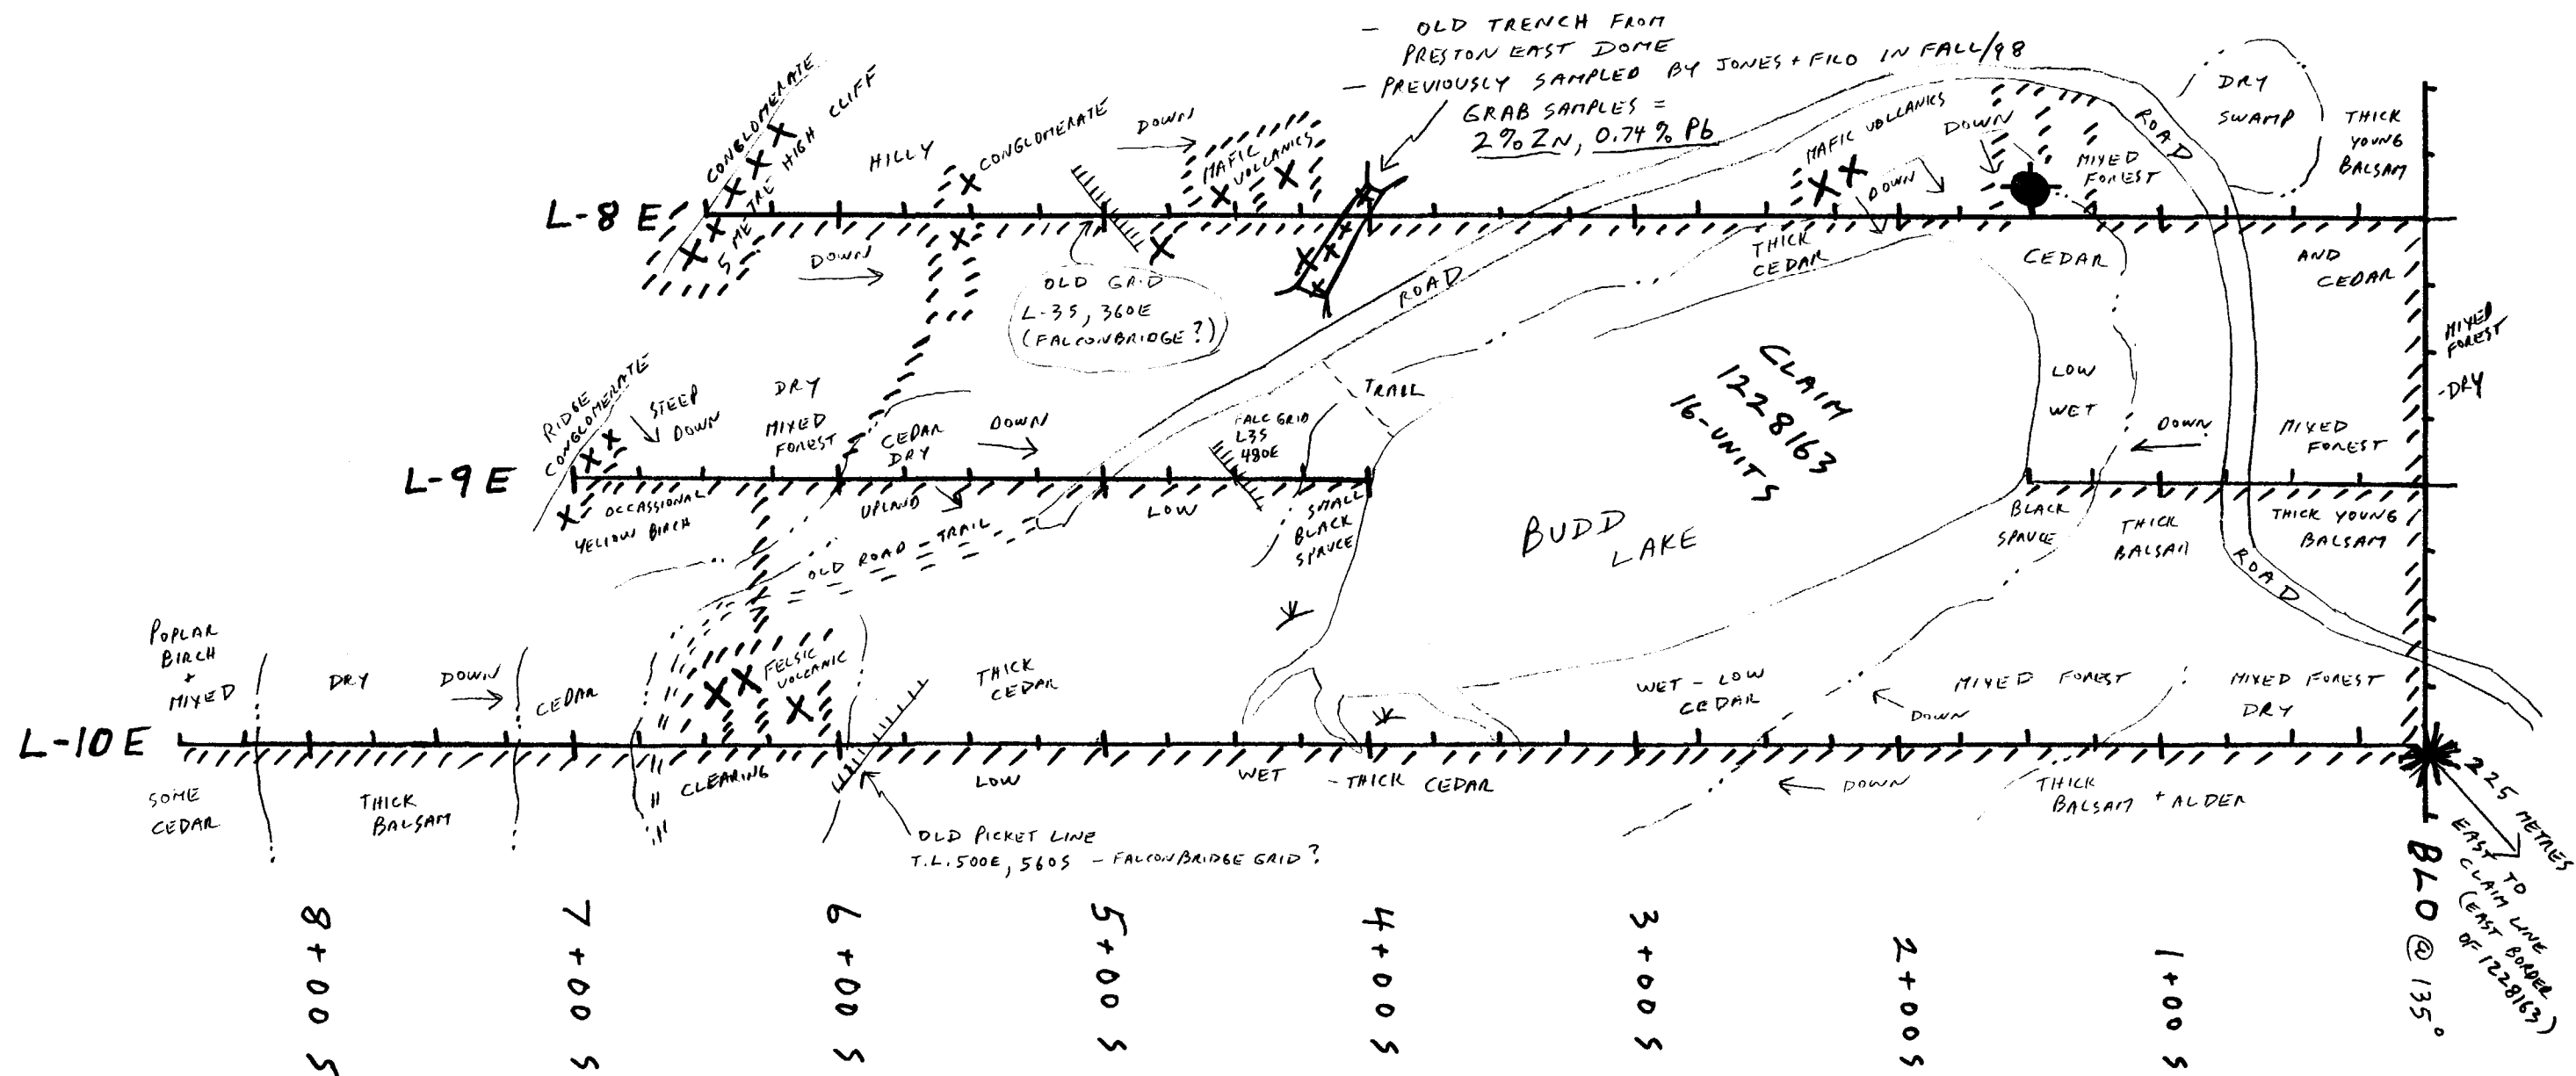 - OLD TRENCH FROM
PRESTON EAST DOME
- PREVIOUSLY SAMPLED BY JONES + FILO IN FALL/98
GRAB SAMPLES =
2% ZN, 0.74% Pb
CONGLOMERATE
5 METRE HIGH CLIFF
HILLY
CONGLOMERATE
DOWN
MAFIC
VOLCANICS
MAFIC VOLCANICS
DOWN
DOWN
MIXED
FOREST
ROAD
DRY
SWAMP
THICK
YOUNG
BALSAM
L-8 E
DOWN
OLD GRID
L-3S, 360E
(FALCONBRIDGE?)
ROAD
THICK
CEDAR
CEDAR
AND
CEDAR
MIXED
FOREST
-DRY
RIDGE
CONGLOMERATE
STEEP
DOWN
DRY
MIXED
FOREST
CEDAR
DRY
DOWN
FALC GRID
L3S
480E
TRAIL
CLAIM
1228163
16-UNITS
LOW
WET
DOWN
MIXED
FOREST
L-9 E
OCCASSIONAL
YELLOW BIRCH
UPLAND
OLD ROAD - TRAIL
LOW
SMALL
BLACK
SPRUCE
BUDD
LAKE
BLACK
SPRUCE
THICK
BALSAM
THICK YOUNG
BALSAM
ROAD
POPLAR
BIRCH
+
MIXED
DRY
DOWN
CEDAR
FELSIC
VOLCANIC
THICK
CEDAR
WET - LOW
CEDAR
DOWN
MIXED FOREST
MIXED FOREST
DRY
L-10 E
SOME
CEDAR
THICK
BALSAM
CLEARING
LOW
WET
- THICK CEDAR
DOWN
THICK
BALSAM + ALDER
OLD PICKET LINE
T.L.500E, 560S - FALCONBRIDGE GRID?
225 METRES
EAST TO
CLAIM LINE
(EAST BORDER
OF 1228163)
8+00 S
7+00 S
6+00 S
5+00 S
4+00 S
3+00 S
2+00 S
1+00 S
BL0 @ 135°